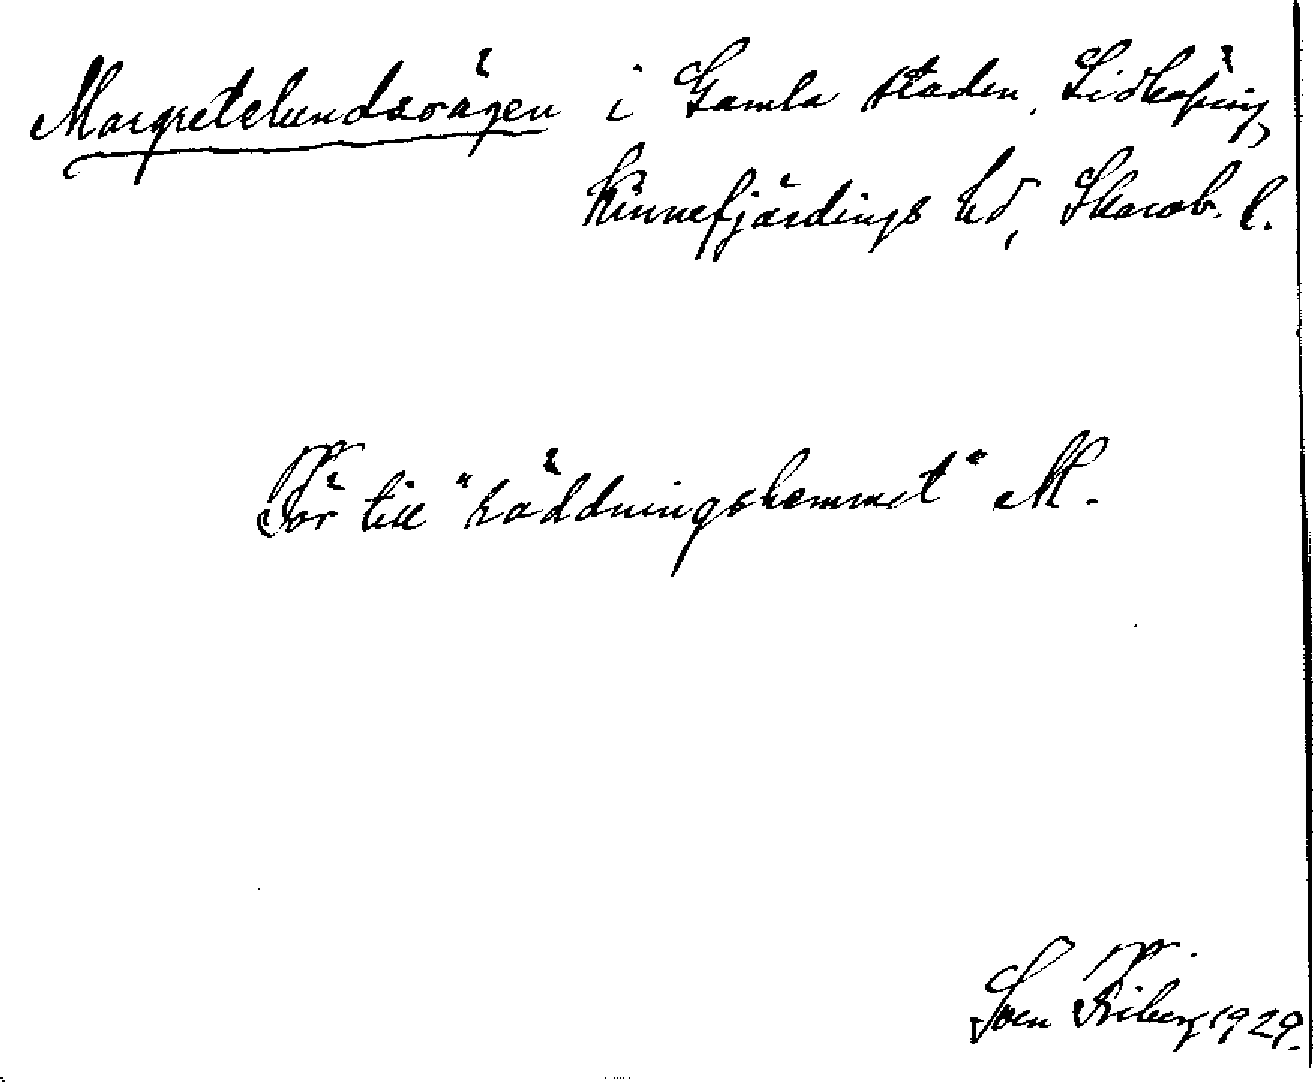 Margretelundsvägen i Gamla staden, Lidköping,
Kinnefjärdings hd, Skarab. l.
Går till "räddningshemmet" M.
Sven Friberg 1929.